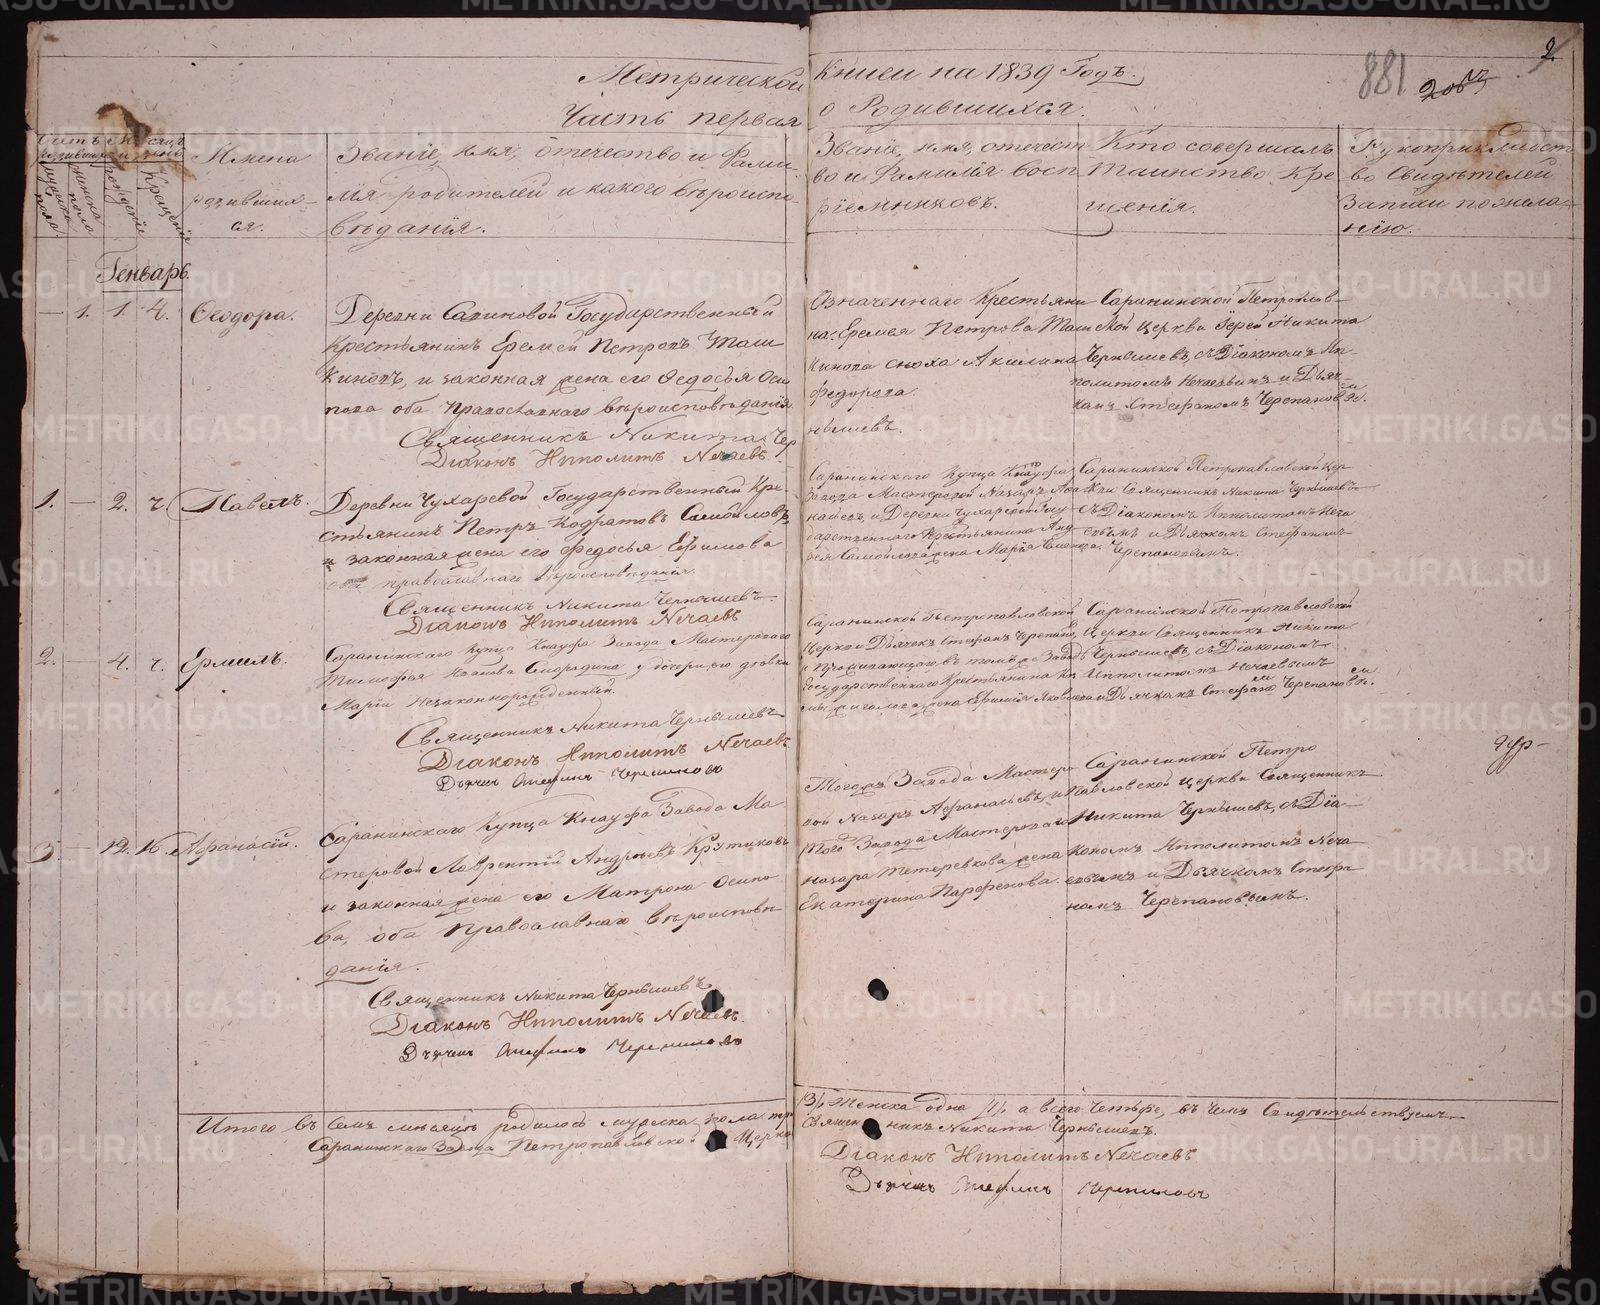 Метрической Книги на 1839 Годъ.
Часть первая о Родившихся.
881
2
Счетъ родившихся
Мѣсяцъ и день
мужеска пола.
женска пола
рожденіе
Крещеніе
Имена
родивших-
ся.
Званіе, имя, отечество и Фами-
лія родителей и какого вѣроиспо-
вѣданія.
Званіе, имя, отечест
во и Фамилія восп
ріемниковъ.
Кто совершалъ
Таинство Кре
щенія.
Рукоприкладст
во Свидѣтелей
Записи по жела-
нію.
Генварь.
— 1. 1. 4. Ѳеодора.
Деревни Савиновой Государственный
Крестьянинъ Еремей Петровъ Таш
киновъ, и законная жена его Ѳедосья Оси
пова оба Православнаго вѣроисповѣданія
Священникъ Никита Чер
нышевъ.
Діаконъ Ипполитъ Нечаевъ.
Означеннаго Крестьяни
на Еремея Петрова Таш
кинова сноха Акилина
Федорова
Саранинской Петропав-
ской Церкви Іерей Никита
Чернышевъ, съ Діакономъ Ип-
политомъ Нечаевымъ и Дьяч-
комъ Стефаномъ Черепановымъ.
1. — 2. 7. Павелъ.
Деревни Чухаревой Государственный Кре-
стьянинъ Петръ Кодратовъ Самойловъ
и законная жена его Федосья Ефимова
оба православнаго вѣроисповѣданія.
Священникъ Никита Чернышевъ.
Діаконъ Ипполитъ Нечаевъ
Саранинскаго Купца Кнауфа
Завода Мастеровой Назаръ Афа
насьевъ, и Деревни Чухаревой Госу-
дарственнаго Крестьянина Анд
рея Самойлова жена Марія Семенова.
Саранинской Петропавловской Цер
кви Священникъ Никита Чернышевъ
съ Діакономъ Ипполитомъ Неча
евымъ и Дьячкомъ Стефаномъ
Черепановымъ.
2. — 4. 7. Ермилъ.
Саранинскаго Купца Кнауфа Завода Мастероваго
Тимофея Иванова Смородина у дочери его дѣвки
Маріи незаконнорожденный.
Священникъ Никита Чернышевъ
Діаконъ Ипполитъ Нечаевъ
Дьячекъ Стефанъ Черепановъ
Саранинской Петропавловской
Церкви Дьячекъ Стефанъ Черепановъ,
и проживающаго въ томъ же Заводѣ
Государственнаго Крестьянина Коз
мы жена Ефимія Яковлева
Саранинской Петропавловской
Церкви Священникъ Никита
Чернышевъ, съ Діакономъ
Ипполитомъ Нечаевымъ
и Дьячкомъ Стефаномъ Черепановымъ.
3. — 12. 16. Афанасій.
Саранинскаго Купца Кнауфа Завода Ма
стеровой Лаврентій Андреевъ Крутиковъ
и законная жена его Матрона Осипо
ва, оба Православнаго вѣроисповѣ
данія.
Священникъ Никита Чернышевъ
Діаконъ Ипполитъ Нечаевъ.
Дьячекъ Стефанъ Черепановъ
Того же Завода Мастеро
вой Назаръ Афанасьевъ, и
того Завода Мастероваго
Назара Тетеревкова жена
Екатерина Парфенова.
Саранинской Петро
павловской Церкви Священникъ
Никита Чернышевъ, съ Діа-
кономъ Ипполитомъ Неча
евымъ и Дьячкомъ Стефа
номъ Черепановымъ.
Итого въ семъ мѣсяцѣ родилось мужска пола три /3/ женска одна /1/ а всего четыре, въ чемъ свидѣтельствуемъ
Саранинскаго Завода Петропавловской Церкви Священникъ Никита Чернышевъ.
Діаконъ Ипполитъ Нечаевъ
Дьячекъ Стефанъ Черепановъ
METRIKI.GASO-URAL.RU